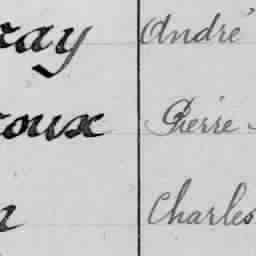 ray André
oux Pierre
Charles